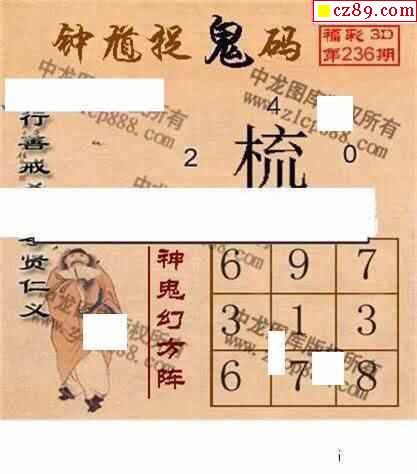 cz89.com
钟馗捉鬼码
福彩3D
第236期
行善戒
贤仁义
4
2
梳
0
神鬼幻方阵
6 9 7
3 1 3
6 7 8
中龙图库版权所有
www.zlcp888.com